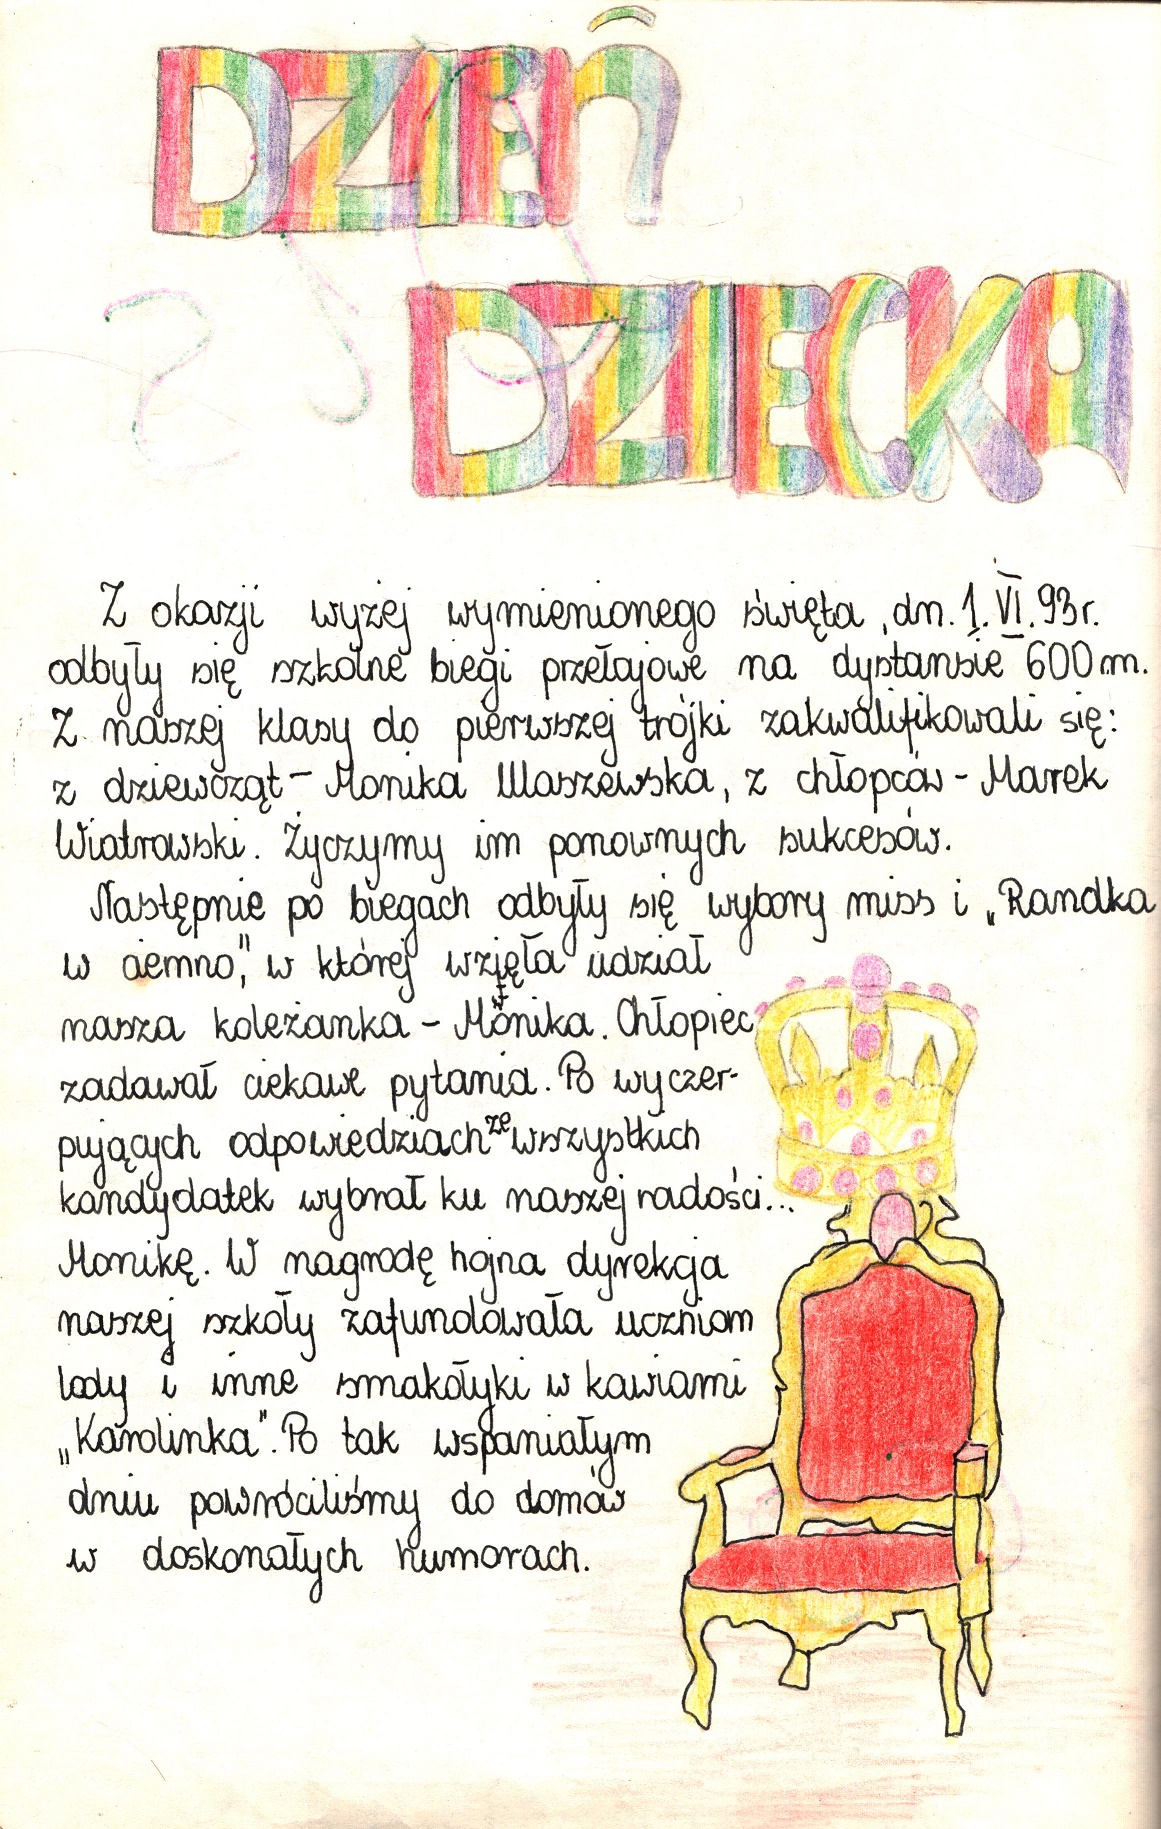 DZIEŃ
DZIECKA
Z okazji wyżej wymienionego święta, dn. 1.VI.93r.
odbyły się szkolne biegi przełajowe na dystansie 600 m.
Z naszej klasy do pierwszej trójki zakwalifikowali się:
z dziewcząt - Monika Waszewska, z chłopców - Marek
Wiatrowski. Życzymy im ponownych sukcesów.
Następnie po biegach odbyły się wybory miss i „Randka
w ciemno", w której wzięła udział
nasza koleżanka - Monika. Chłopiec
zadawał ciekawe pytania. Po wyczer-
pujących odpowiedziach ze wszystkich
kandydatek wybrał ku naszej radości...
Monikę. W nagrodę hojna dyrekcja
naszej szkoły zafundowała uczniom
lody i inne smakołyki w kawiarni
„Karolinka". Po tak wspaniałym
dniu powróciliśmy do domów
w doskonałych humorach.